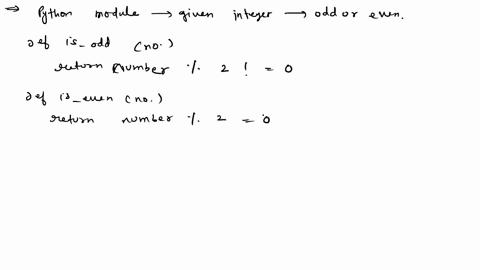 ⇒ Python module → given integer → odd or even.
def is_odd (no.)
return (number % 2 ! = 0
def is_even (no.)
return number % 2 = 0